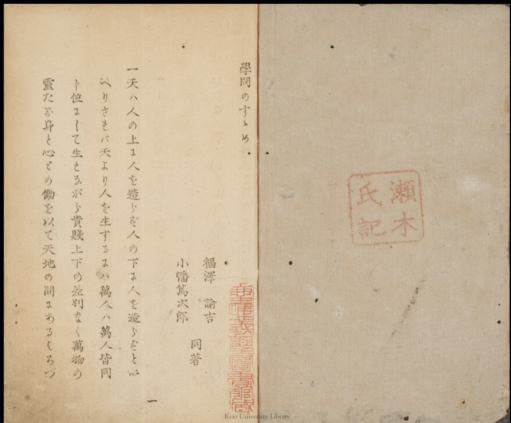 學問のすゝめ
福澤 諭吉
小幡篤次郎 同著
一天ハ人の上に人を造らず人の下に人を造らずと以
へりされバ天より人を生ずるにハ萬人ハ萬人皆同
ト位にして生れながら貴賤上下の差別なく萬物の
靈たる身と心との働を以て天地の間にあるよろづ
一
瀬木
氏記
Keio University Library